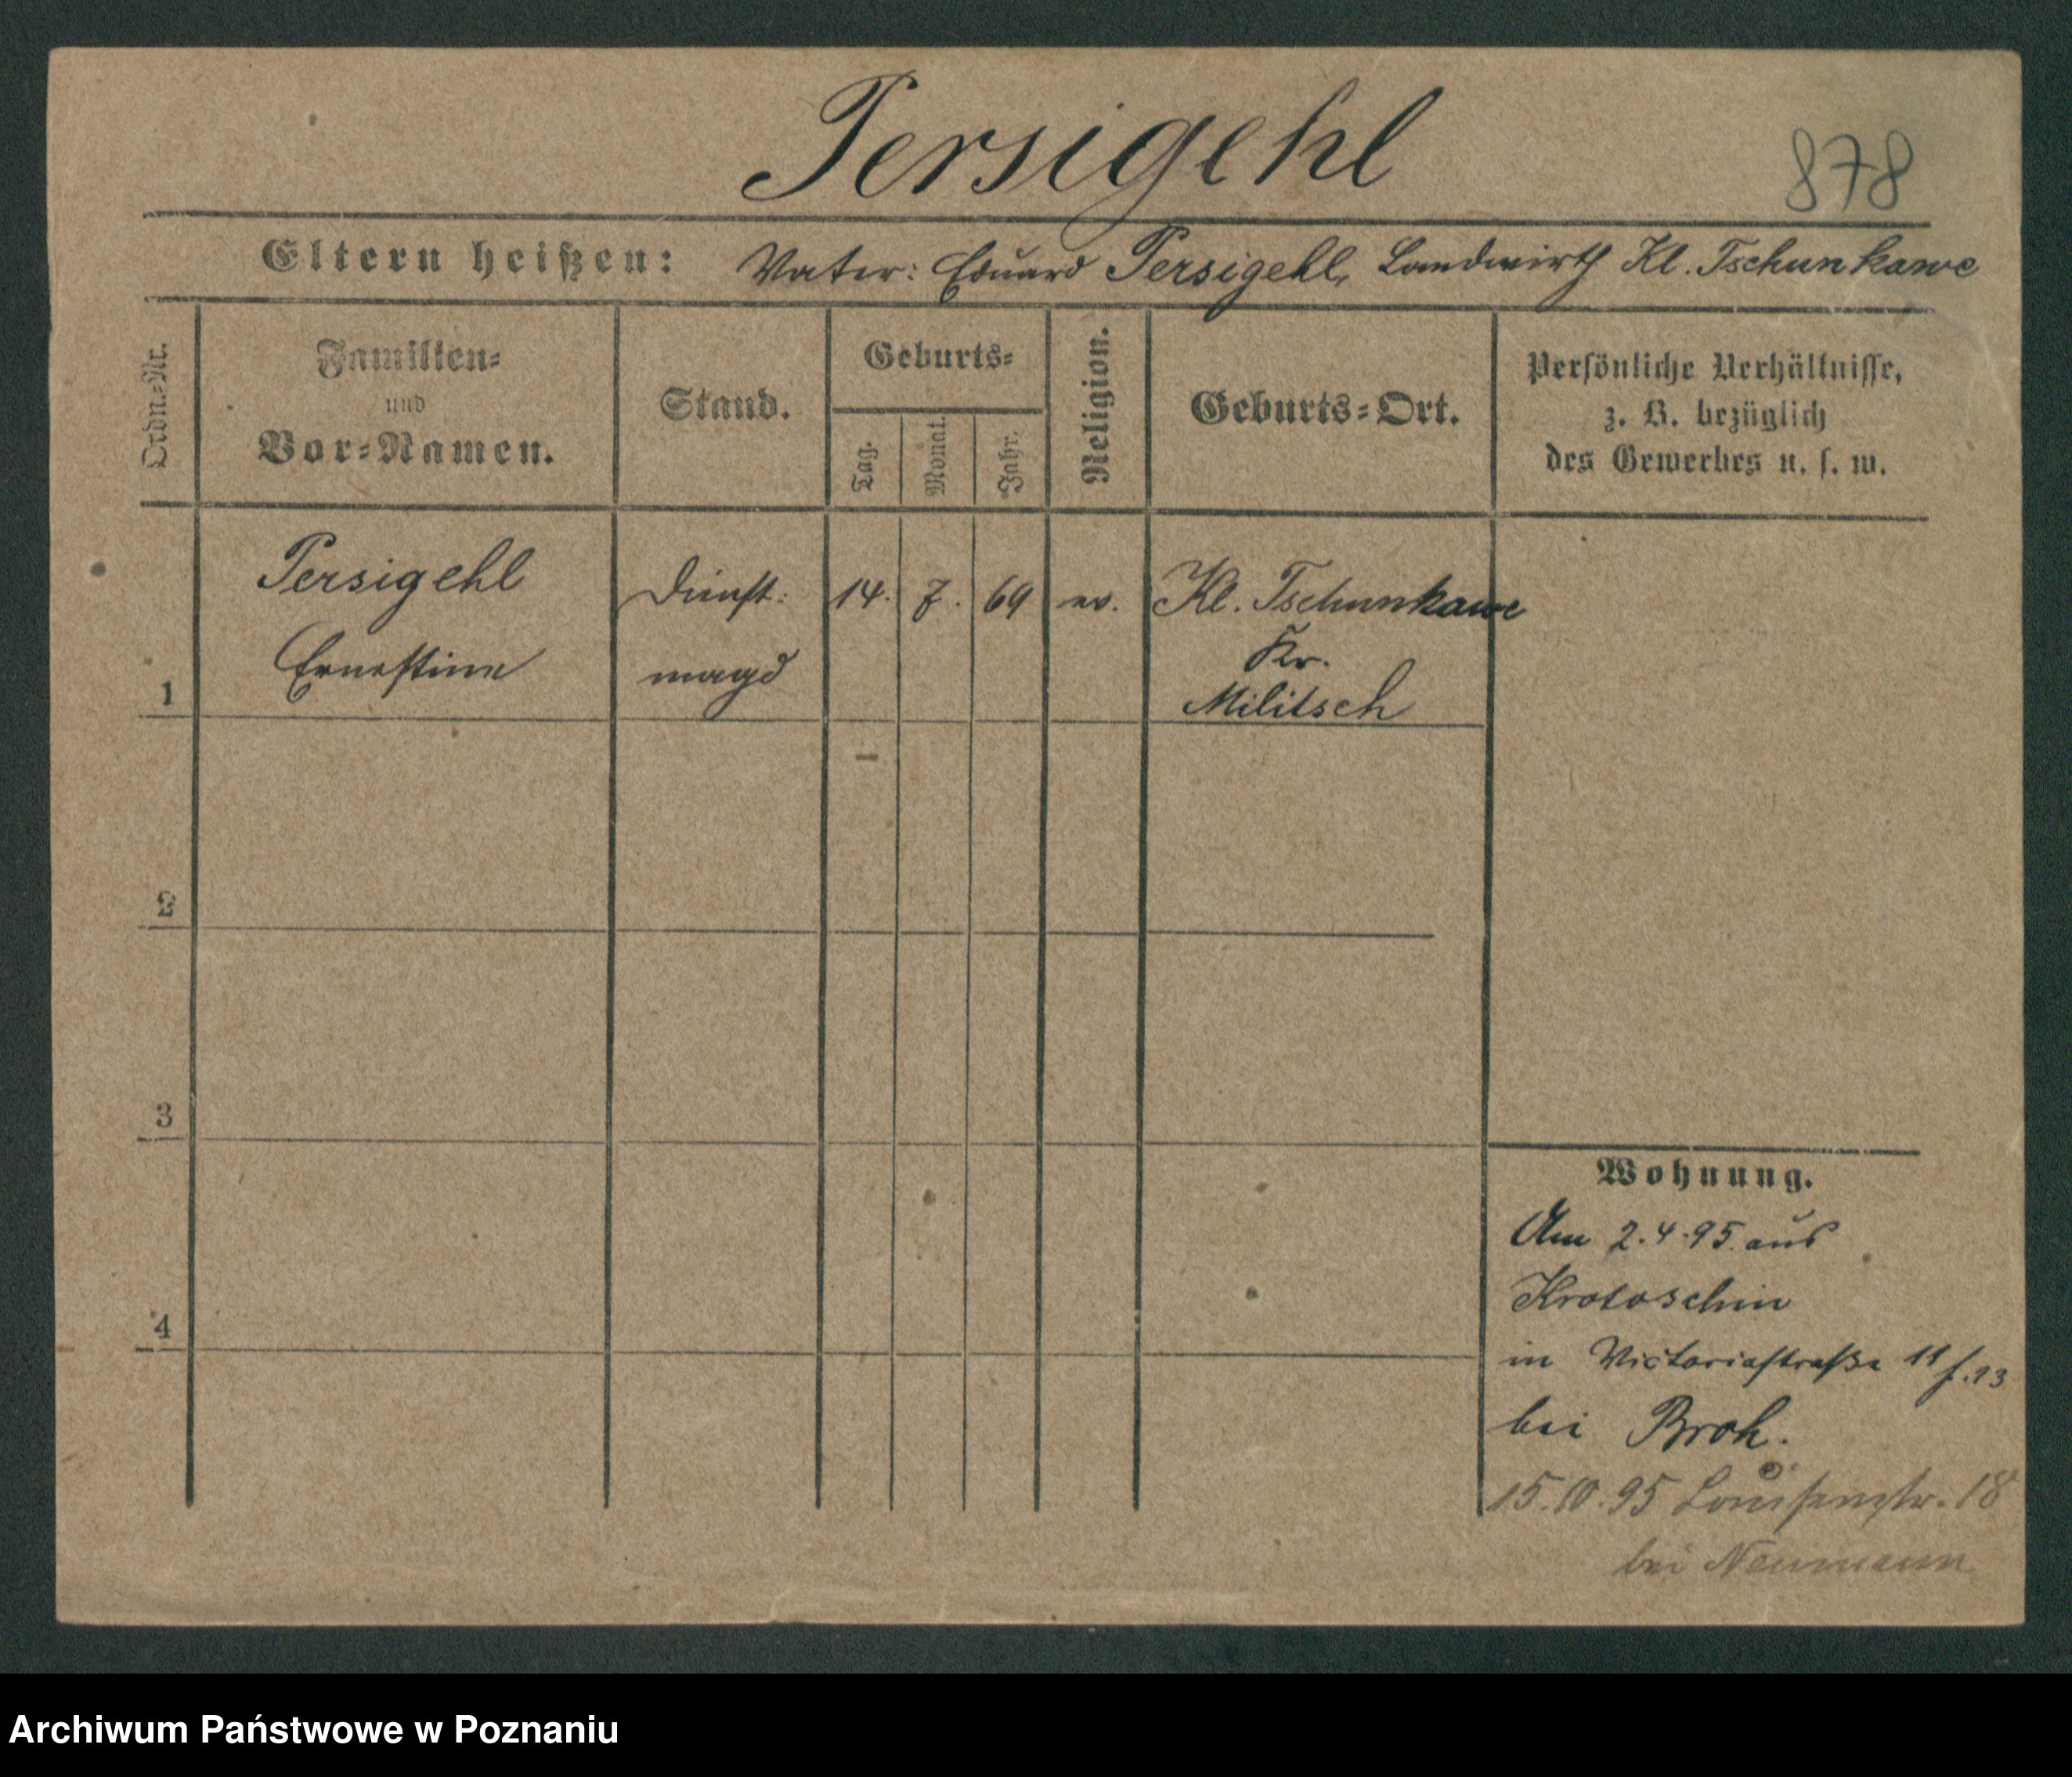 Persigehl
878
Eltern heißen: Vater: Eduard Persigehl, Landwirth Kl. Tschunkawe
Ordn.=Nr.
Familien=
und
Vor=Namen.
Stand.
Geburts=
Tag.
Monat.
Jahr.
Religion.
Geburts=Ort.
Persönliche Verhältnisse,
z. B. bezüglich
des Gewerbes u. s. w.
1
Persigehl
Ernestine
Dienst=
magd
14. 7. 69
ev.
Kl. Tschunkawe
Kr.
Militsch
2
3
4
Wohnung.
Am 2.4.95. aus
Krotoschin
in Victoriastraße 11
bei Broh.
15.10.95 Louisenstr. 18
bei Neumann
Archiwum Państwowe w Poznaniu